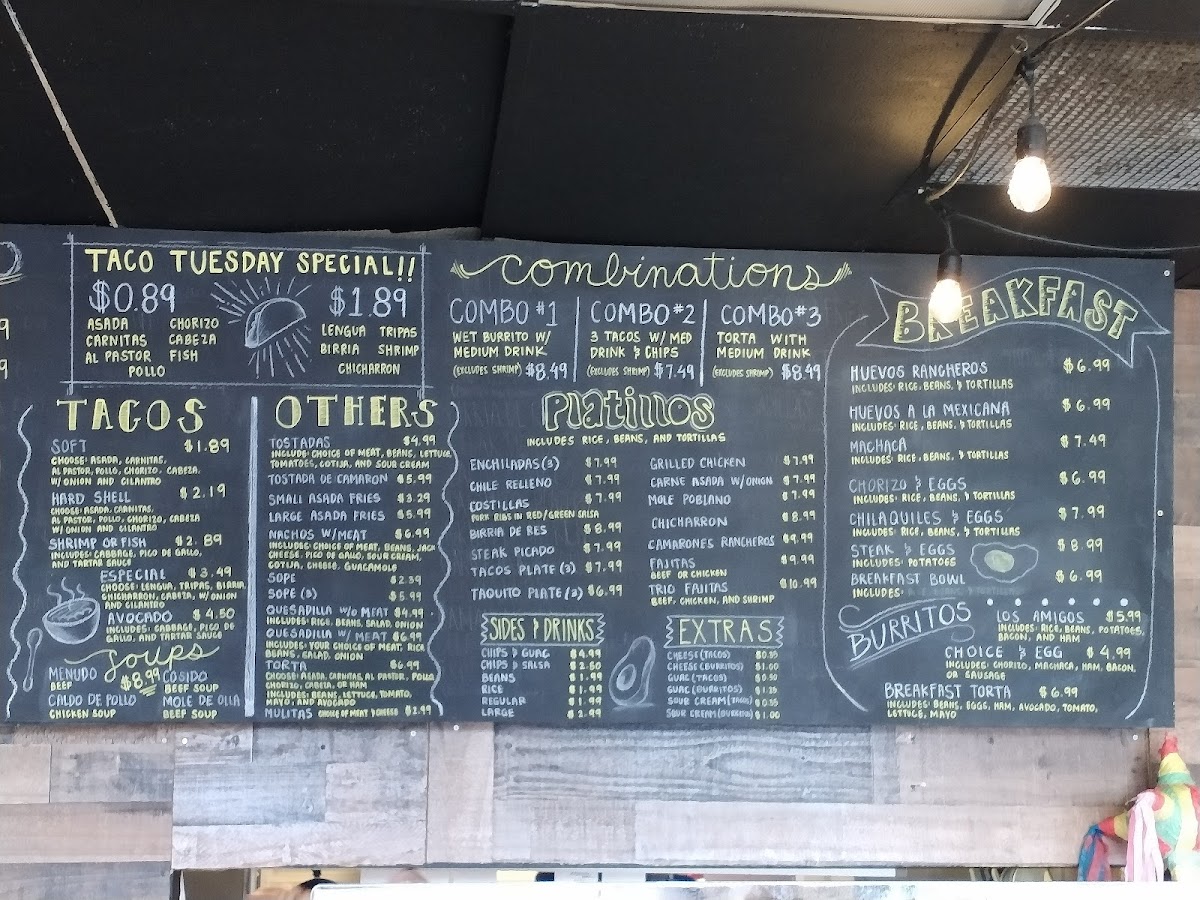 TACO TUESDAY SPECIAL!!
$0.89
ASADA CHORIZO
CARNITAS CABEZA
AL PASTOR FISH
POLLO
$1.89
LENGUA TRIPAS
BIRRIA SHRIMP
CHICHARRON
TACOS
SOFT $1.89
CHOOSE: ASADA, CARNITAS,
AL PASTOR, POLLO, CHORIZO, CABEZA.
W/ ONION AND CILANTRO
HARD SHELL $2.19
CHOOSE: ASADA, CARNITAS,
AL PASTOR, POLLO, CHORIZO, CABEZA
W/ ONION AND CILANTRO
SHRIMP OR FISH $2.89
INCLUDES: CABBAGE, PICO DE GALLO,
AND TARTAR SAUCE
ESPECIAL $3.49
CHOOSE: LENGUA, TRIPAS, BIRRIA,
CHICHARRON, CABEZA, W/ ONION
AND CILANTRO
AVOCADO $4.50
INCLUDES: CABBAGE, PICO DE
GALLO, AND TARTAR SAUCE
Soups
$8.99
MENUDO
BEEF
COSIDO
BEEF SOUP
CALDO DE POLLO
CHICKEN SOUP
MOLE DE OLLA
BEEF SOUP
OTHERS
TOSTADAS $4.99
INCLUDE: CHOICE OF MEAT, BEANS, LETTUCE,
TOMATOES, COTIJA, AND SOUR CREAM
TOSTADA DE CAMARON $5.99
SMALL ASADA FRIES $3.29
LARGE ASADA FRIES $5.99
NACHOS W/MEAT $6.99
INCLUDES: CHOICE OF MEAT, BEANS, JACK
CHEESE, PICO DE GALLO, SOUR CREAM,
COTIJA, CHEESE, GUACAMOLE
SOPE $2.39
SOPE (3) $5.99
QUESADILLA W/O MEAT $4.99
INCLUDES: RICE, BEANS, SALAD, ONION
QUESADILLA W/ MEAT $6.99
INCLUDES: YOUR CHOICE OF MEAT, RICE
BEANS, SALAD, ONION
TORTA $6.99
CHOOSE: ASADA, CARNITAS, AL PASTOR, POLLO,
CHORIZO, CABEZA, OR HAM
INCLUDES: BEANS, LETTUCE, TOMATO,
MAYO, AND AVOCADO
MULITAS CHOICE OF MEAT & CHEESE $2.99
combinations
COMBO #1
WET BURRITO W/
MEDIUM DRINK
(EXCLUDES SHRIMP) $8.49
COMBO #2
3 TACOS W/ MED
DRINK & CHIPS
(EXCLUDES SHRIMP) $7.49
COMBO #3
TORTA WITH
MEDIUM DRINK
(EXCLUDES SHRIMP) $8.49
Platillos
INCLUDES RICE, BEANS, AND TORTILLAS
ENCHILADAS (3) $7.99
CHILE RELLENO $7.99
COSTILLAS $7.99
PORK RIBS IN RED/GREEN SALSA
BIRRIA DE RES $8.99
STEAK PICADO $7.99
TACOS PLATE (3) $7.99
TAQUITO PLATE (3) $6.99
GRILLED CHICKEN $7.99
CARNE ASADA W/ ONION $7.99
MOLE POBLANO $7.99
CHICHARRON $8.99
CAMARONES RANCHEROS $9.99
FAJITAS $9.99
BEEF OR CHICKEN
TRIO FAJITAS $10.99
BEEF, CHICKEN, AND SHRIMP
SIDES & DRINKS
CHIPS & GUAC $4.99
CHIPS & SALSA $2.50
BEANS $1.99
RICE $1.99
REGULAR $1.99
LARGE $2.99
EXTRAS
CHEESE (TACOS) $0.35
CHEESE (BURRITOS) $1.00
GUAC (TACOS) $0.50
GUAC (BURRITOS) $1.25
SOUR CREAM (TACOS) $0.35
SOUR CREAM (BURRITOS) $1.00
BREAKFAST
HUEVOS RANCHEROS $6.99
INCLUDES: RICE, BEANS, & TORTILLAS
HUEVOS A LA MEXICANA $6.99
INCLUDES: RICE, BEANS, & TORTILLAS
MACHACA $7.49
INCLUDES: RICE, BEANS, & TORTILLAS
CHORIZO & EGGS $6.99
INCLUDES: RICE, BEANS, & TORTILLAS
CHILAQUILES & EGGS $7.99
INCLUDES: RICE, BEANS, & TORTILLAS
STEAK & EGGS $8.99
INCLUDES: POTATOES
BREAKFAST BOWL $6.99
INCLUDES:
BURRITOS
LOS AMIGOS $5.99
INCLUDES: RICE, BEANS, POTATOES,
BACON, AND HAM
CHOICE & EGG $4.99
INCLUDES: CHORIZO, MACHACA, HAM, BACON,
OR SAUSAGE
BREAKFAST TORTA $6.99
INCLUDES: BEANS, EGGS, HAM, AVOCADO, TOMATO,
LETTUCE, MAYO